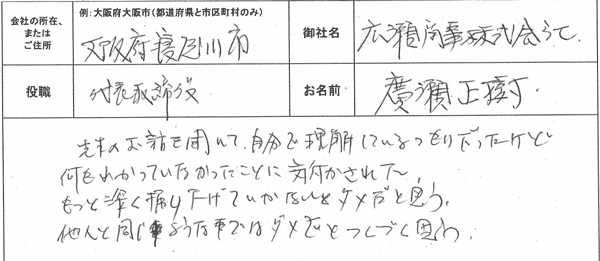 会社の所在、
または
ご住所
例:大阪府大阪市(都道府県と市区町村のみ)
大阪府寝屋川市
御社名
広瀬商事株式会社
役職
代表取締役
お名前
廣瀬正樹
先生のお話を聞いて、自分で理解しているつもりだったけど
何もわかっていなかったことに気付かされた。
もっと深く掘り下げていかないとダメだと思う。
他人と同じような事ではダメだとつくづく思う。